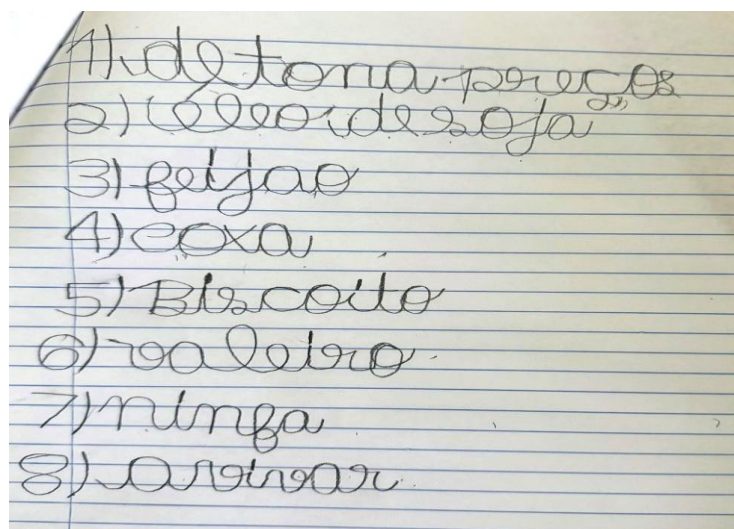 1) detona preços
2) óleo de soja
3) feijao
4) coxa
5) Biscoito
6) valeiro
7) ninfa
8) avivar